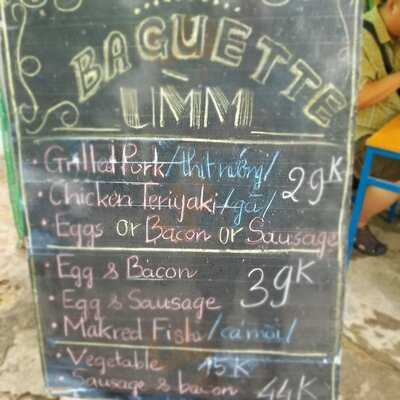 BAGUETTE
UMM
• Grilled Pork /thịt nướng/
• Chicken Teriyaki /gà/ 29K
• Eggs or Bacon or Sausage
• Egg & Bacon
• Egg & Sausage 39K
• Makred Fish /cá mòi/
• Vegetable 15K
• Sausage & bacon 44K